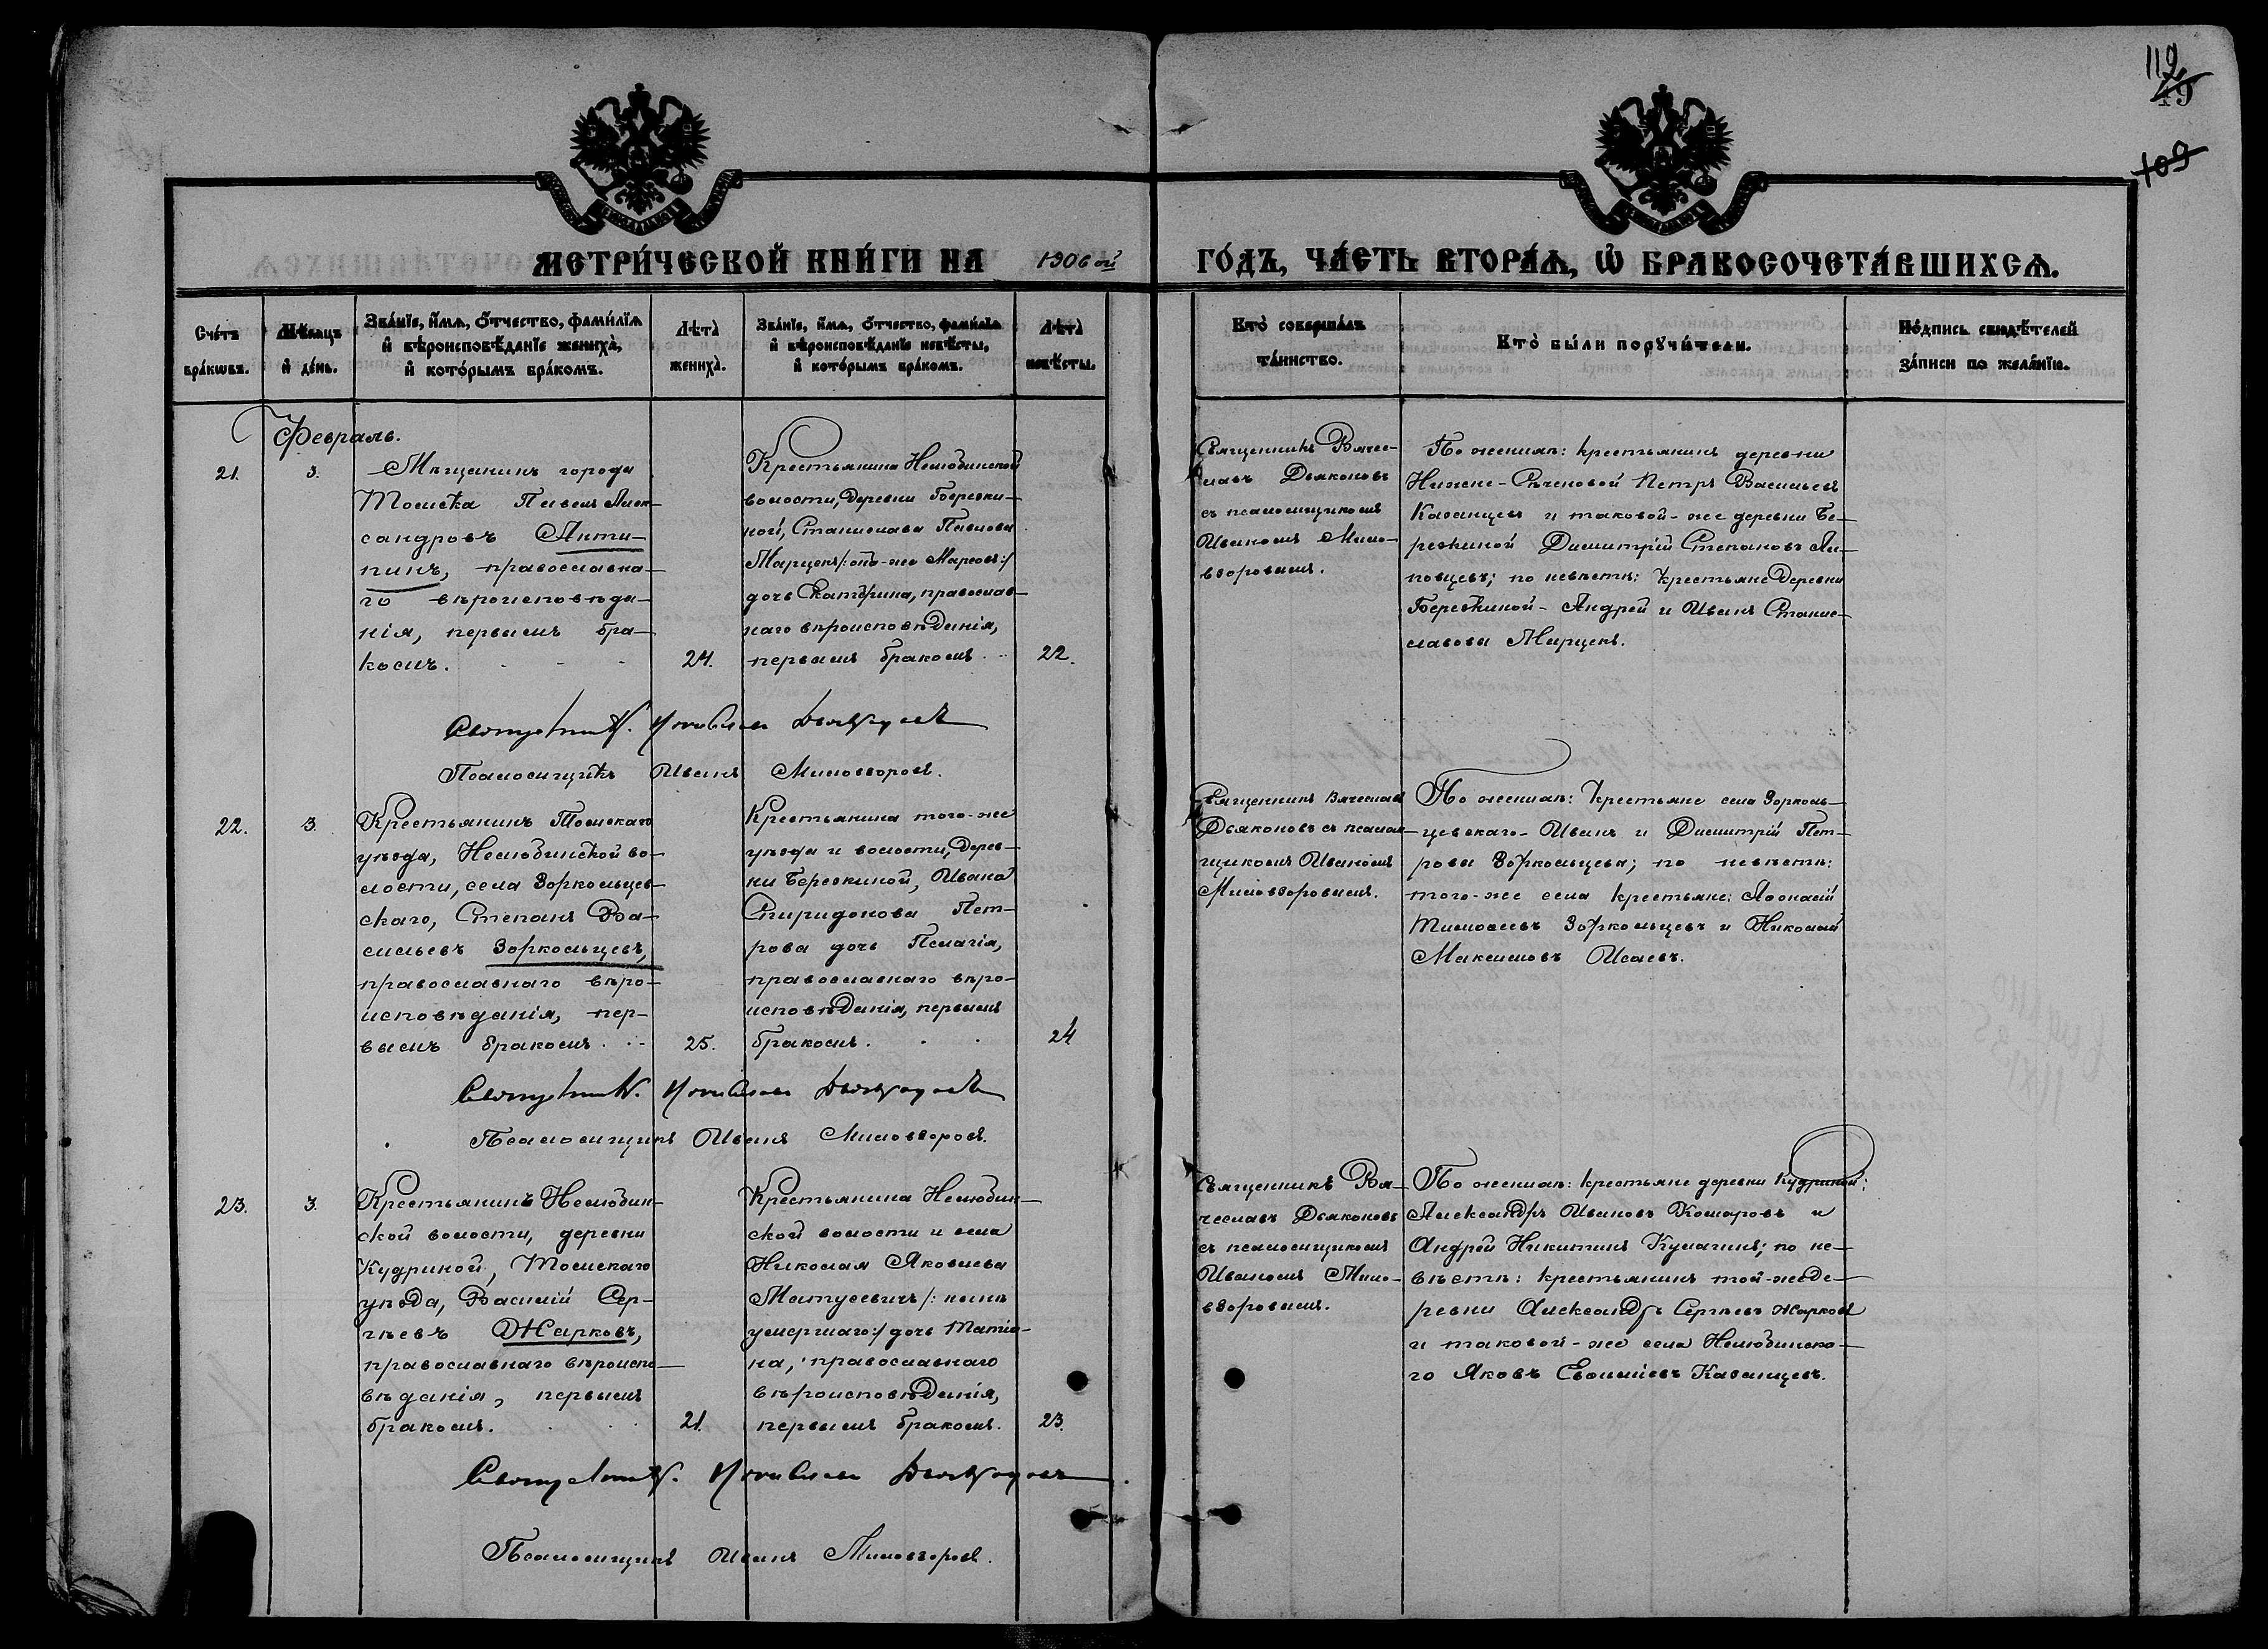 112
49
109
МЕТРИ́ЧЕСКОЙ КНИ́ГИ НА 1906 ой ГО́ДЪ, ЧА́СТЬ ВТОРА́Ѧ, Ѽ БРАКОСОЧЕТА́ВШИХСѦ.
Сче́тъ
бра́кѡвъ.
Мѣ́сѧцъ
и҆ де́нь.
Зва́нїе, и҆́мѧ, ѻ҆́тчество, фами́лїѧ
и҆ вѣроисповѣ́данїе жениха̀,
и҆ кото́рымъ бра́комъ.
Лѣта̀
жениха̀.
Зва́нїе, и҆́мѧ, ѻ҆́тчество, фами́лїѧ
и҆ вѣроисповѣ́данїе невѣ́сты,
и҆ кото́рымъ бра́комъ.
Лѣта̀
невѣ́сты.
Кто̀ соверша́лъ
та́инство.
Кто̀ бы́ли порꙋчи́тели.
По́дпись свидѣ́телей
за́писи по жела́нїю.
Февраль.
21.
3.
Мѣщанинъ города
Томска Павелъ Алек-
сандровъ Анти-
пинъ, православна-
го вѣроисповѣда-
нія, первымъ бра-
комъ.
24.
Крестьянина Нелюбинской
волости, деревни Березки-
ной, Станислава Павлова
Марценъ /: онъ-же Марсовъ:/
дочь Екатерина, православ-
наго вѣроисповѣданія,
первымъ бракомъ
22.
Священникъ Вяче-
славъ Дьяконовъ
съ псаломщикомъ
Иваномъ Мило-
взоровымъ.
По женихѣ: крестьянинъ деревни
Нижне-Сѣченовой Петръ Васильевъ
Казанцевъ и таковой-же деревни Бе-
резкиной Димитрій Степановъ Ли-
повцевъ; по невѣстѣ: крестьяне деревни
Березкиной - Андрей и Иванъ Станис-
лавовы Марценъ.
Священникъ Вячеславъ Дьяконовъ
Псаломщикъ Иванъ Миловзоровъ.
22.
3.
Крестьянинъ Томскаго
уѣзда, Нелюбинской во-
лости, села Зоркольцев-
скаго, Степанъ Ва-
сильевъ Зоркольцевъ,
православнаго вѣро-
исповѣданія, пер-
вымъ бракомъ.
25.
Крестьянина того-же
уѣзда и волости, дерев-
ни Березкиной, Ивана
Спиридонова Пет-
рова дочь Пелагія,
православнаго вѣро-
исповѣданія, первымъ
бракомъ.
24
Священникъ Вячеславъ
Дьяконовъ съ псалом-
щикомъ Иваномъ
Миловзоровымъ.
По женихѣ: крестьяне села Зорколь-
цевскаго - Иванъ и Димитрій Пет-
ровы Зоркольцевы; по невѣстѣ:
того-же села крестьяне: Афонасій
Тимофеевъ Зоркольцевъ и Николай
Максимовъ Исаевъ.
Священникъ Вячеславъ Дьяконовъ
Псаломщикъ Иванъ Миловзоровъ.
23.
3.
Крестьянинъ Нелюбин-
ской волости, деревни
Кудриной, Томскаго
уѣзда, Василій Сер-
гѣевъ Жарковъ,
православнаго вѣроиспо-
вѣданія, первымъ
бракомъ.
21.
Крестьянина Нелюбин-
ской волости и села
Николая Яковлева
Матусевичъ /: нынѣ
умершаго:/ дочь Матро-
на, православнаго
вѣроисповѣданія,
первымъ бракомъ.
23.
Священникъ Вя-
чеславъ Дьяконовъ
съ псаломщикомъ
Иваномъ Мило-
взоровымъ.
По женихѣ: крестьяне деревни Кудриной:
Александръ Ивановъ Комаровъ и
Андрей Никитинъ Кулагинъ; по не-
вѣстѣ: крестьянинъ той-же де-
ревни Александръ Сергѣевъ Жарковъ
и таковой-же села Нелюбинска-
го Яковъ Евфиміевъ Казанцевъ.
Священникъ Вячеславъ Дьяконовъ
Псаломщикъ Иванъ Миловзоровъ.